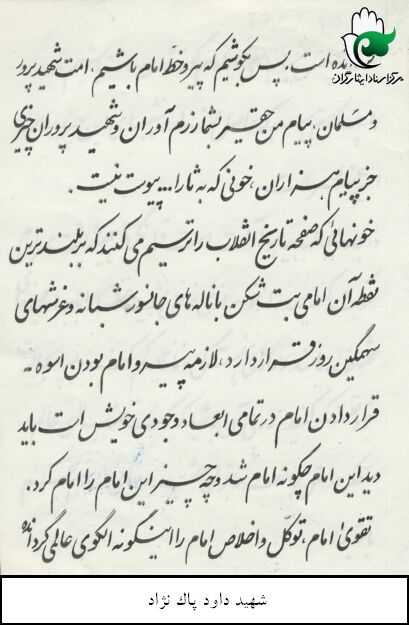 مرکز اسناد ایثارگران
شده است. پس بکوشیم که پیرو خط امام باشیم، امت شهید پرور
و مسلمان، پیام من حقیر بشما رزم آوران و شهید پروران چیزی
جز پیام هزاران، خونی که به ثارا... پیوست نیست.
خونهائی که صفحه تاریخ انقلاب را ترسیم می کنند که بر بلندترین
نقطه آن امامی بت شکن با ناله های جانسوز شبانه و غرشهای
سهمگین روز قرار دارد، لازمه پیرو امام بودن اسوه -
قرار دادن امام در تمامی ابعاد وجودی خویش است باید
دید این امام چگونه امام شد و چه چیز این امام را امام کرد.
تقوی امام، توکل و اخلاص امام را اینگونه الگوی عالمی گردانده
شهید داود پاك نژاد